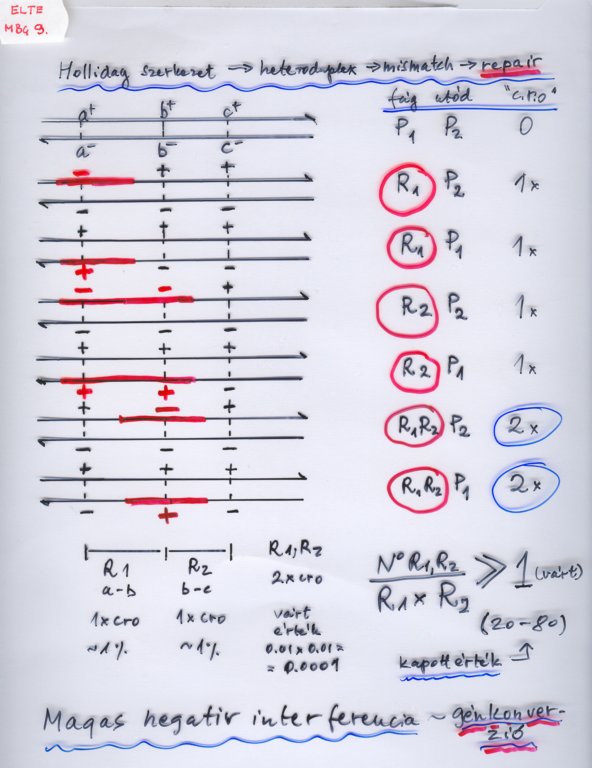 ELTE
MBG 9.
Holliday szerkezet → heteroduplex → mismatch → repair
fág utód "c.r.o"
a+ b+ c+
P1 P2 0
a- b- c-
- + +
R1 P2 1x
- - -
+ + +
R1 P1 1x
+ - -
- - +
R2 P2 1x
- - -
+ + +
R2 P1 1x
+ + -
+ - +
R1R2 P2 2x
- - -
+ + +
R1R2 P1 2x
- + -
R1 R2 R1,R2
a-b b-c 2xcro
1xcro 1xcro várt
érték
~1% ~1% 0.01x0.01=
= 0.0001
N° R1,R2
R1 x R2
≫ 1 (várt)
(20-80)
kapott érték
Magas negatív interferencia ~ génkonver-
zió